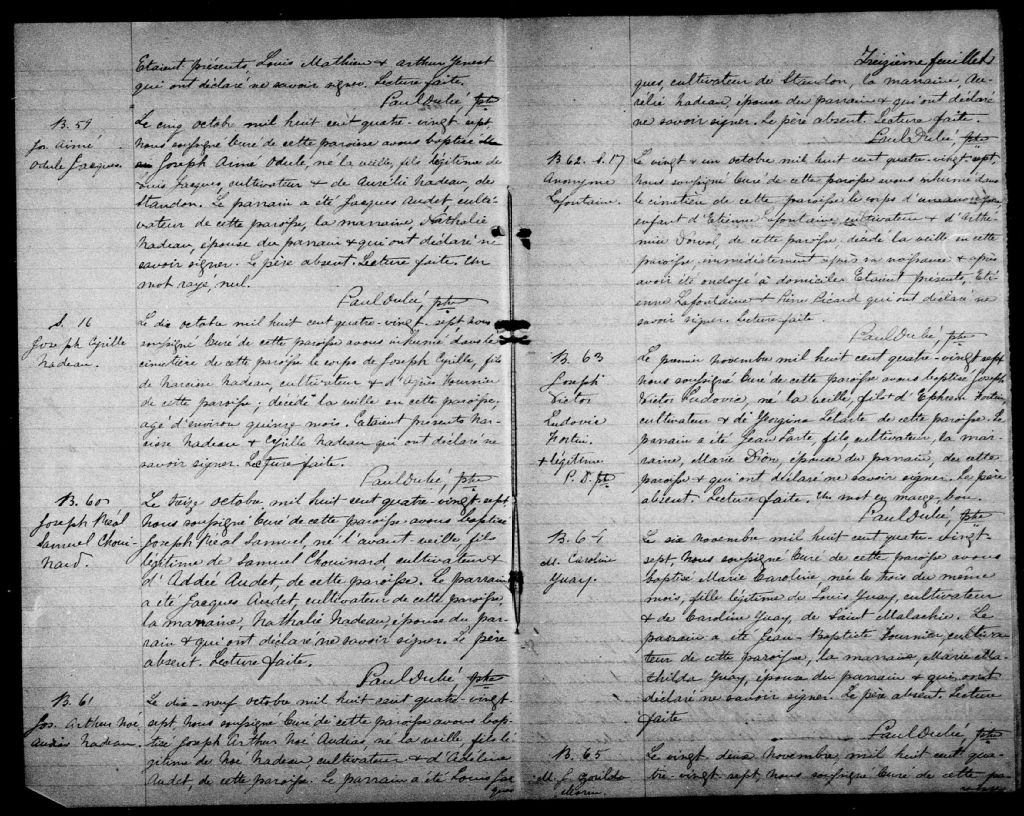 Etaient présents Louis Mathieu & Arthur Genest
qui ont déclaré ne savoir signer. Lecture faite.
Paul Dubé, ptre
B. 59
Jos. Aimé
Odule Jacques.
Le cinq octobre mil huit cent quatre-vingt sept
Nous soussigné Curé de cette paroisse avons baptisé
Joseph Aimé Odule, né la veille, fils légitime de
Louis Jacques, cultivateur & de Aurélie Nadeau, de
Standon. Le parrain a été Jacques Audet culti-
vateur de cette paroisse, la marraine, Nathalie
Nadeau, épouse du parrain & qui ont déclaré ne
savoir signer. Le père absent. Lecture faite. Un
mot rayé, nul.
Paul Dubé, ptre
S. 16
Joseph Cyrille
Nadeau.
Le dix octobre mil huit cent quatre-vingt-sept nous
soussigné Curé de cette paroisse avons inhumé dans le
cimetière de cette paroisse le corps de Joseph Cyrille, fils
de Narcisse Nadeau, cultivateur & d'Agnès Fournier
de cette paroisse; décédé la veille en cette paroisse,
agé d'environ quinze mois. Etaient présents Nar-
cisse Nadeau & Cyrille Nadeau qui ont déclaré ne
savoir signer. Lecture faite.
Paul Dubé, ptre
B. 60
Joseph Réal
Samuel Choui-
nard.
Le treize octobre mil huit cent quatre-vingt sept
Nous soussigné Curé de cette paroisse avons baptisé
Joseph Réal Samuel, né l'avant veille, fils
légitime de Samuel Chouinard, cultivateur &
d'Addée Audet, de cette paroisse. Le parrain
a été Jacques Audet, cultivateur de cette paroisse,
la marraine, Nathalie Nadeau, épouse du par-
rain & qui ont déclaré ne savoir signer. Le père
absent. Lecture faite.
Paul Dubé, ptre
B. 61
Jos. Arthur Noé
Audias Nadeau.
Le dix-neuf octobre mil huit cent quatre-vingt
sept Nous soussigné Curé de cette paroisse avons bap-
tisé Joseph Arthur Noé Audias, né la veille fils lé-
gitime de Noé Nadeau, cultivateur & d'Adélina
Audet, de cette paroisse. Le parrain a été Louis Jac
ques
Treizième feuillet
ques, cultivateur de Standon, la marraine, Au-
rélie Nadeau, épouse du parrain & qui ont déclaré
ne savoir signer. Le père absent. Lecture faite.
Paul Dubé, ptre
B 62. S. 17
Anonyme
Lafontaine.
Le vingt & un octobre mil huit cent quatre-vingt-sept
Nous soussigné Curé de cette paroisse avons inhumé dans
le cimetière de cette paroisse le corps d'un anonyme
enfant d'Etienne Lafontaine, cultivateur & d'Arthé-
mise Dorval, de cette paroisse, décédé la veille en cette
paroisse, immédiatement après sa naissance & après
avoir été ondoyé à domicile. Etaient présents, Eti-
enne Lafontaine & Pierre Picard qui ont déclaré ne
savoir signer. Lecture faite.
Paul Dubé, ptre
B. 63
Joseph
Victor
Ludovic
Fortin.
+ légitime
P. D. ptre
Le premier novembre mil huit cent quatre-vingt sept
Nous soussigné Curé de cette paroisse avons baptisé Joseph
Victor Ludovic, né la veille, fils + d'Ephrem Fortin,
cultivateur & de Georgina Lelarte de cette paroisse. Le
parrain a été Jean Larte, fils cultivateur, la mar-
raine, Marie Dion, épouse du parrain, de cette
paroisse & qui ont déclaré ne savoir signer. Le père
absent. Lecture faite. Un mot en marge, bon.
Paul Dubé, ptre
B. 64
M. Caroline
Guay.
Le six novembre mil huit cent quatre-vingt
sept, Nous soussigné Curé de cette paroisse avons
baptisé Marie Caroline, née le trois du même
mois, fille légitime de Louis Guay, cultivateur
& de Caroline Guay, de Saint Malachie. Le
parrain a été Jean-Baptiste Fournier, cultiva-
teur de cette paroisse, la marraine, Marie Ma-
thilda Guay, épouse du parrain & qui ont
déclaré ne savoir signer. Le père absent. Lecture
faite
Paul Dubé, ptre
B. 65
Morin.
Le vingt deux Novembre, mil huit cent qua-
tre-vingt sept, Nous soussigné Curé de cette pa